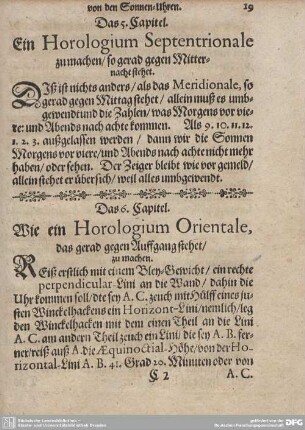 von den Sonnen-Uhren. 19
Das 5. Capitel.
Ein Horologium Septentrionale
zu machen/ so gerad gegen Mitter-
nacht stehet.
DIß ist nichts anders/ als das Meridionale, so
gerad gegen Mittag stehet/ allein muß es umb-
gewendt und die Zahlen/ was Morgens vor vie-
re: und Abends nach achte kommen. Als 9. 10. 11. 12.
1. 2. 3. außgelassen werden/ dann wir die Sonnen
Morgens vor viere/ und Abends nach achte nicht mehr
haben/ oder sehen. Der Zeiger bleibt wie vor gemeld/
allein stehet er übersich/ weil alles umbgewendt.
Das 6. Capitel.
Wie ein Horologium Orientale,
das gerad gegen Auffgang stehet/
zu machen.
REiß erstlich mit einem Bley-Gewicht/ ein rechte
perpendicular-Lini an die Wand/ dahin die
Uhr kommen soll/ die sey A. C. zeuch mit Hülff eines ju-
sten Winckelhackens ein Horizont-Lini/ nemlich/ leg
den Winckelhacken mit dem einen Theil an die Lini
A. C. am andern Theil zeuch ein Lini/ die sey A. B. fer-
ner/ reiß auß A. die Æquinoctial-Höhe/ von der Ho-
rizontal-Lini A. B. 41. Grad 20. Minuten oder von
C 2 A. C.